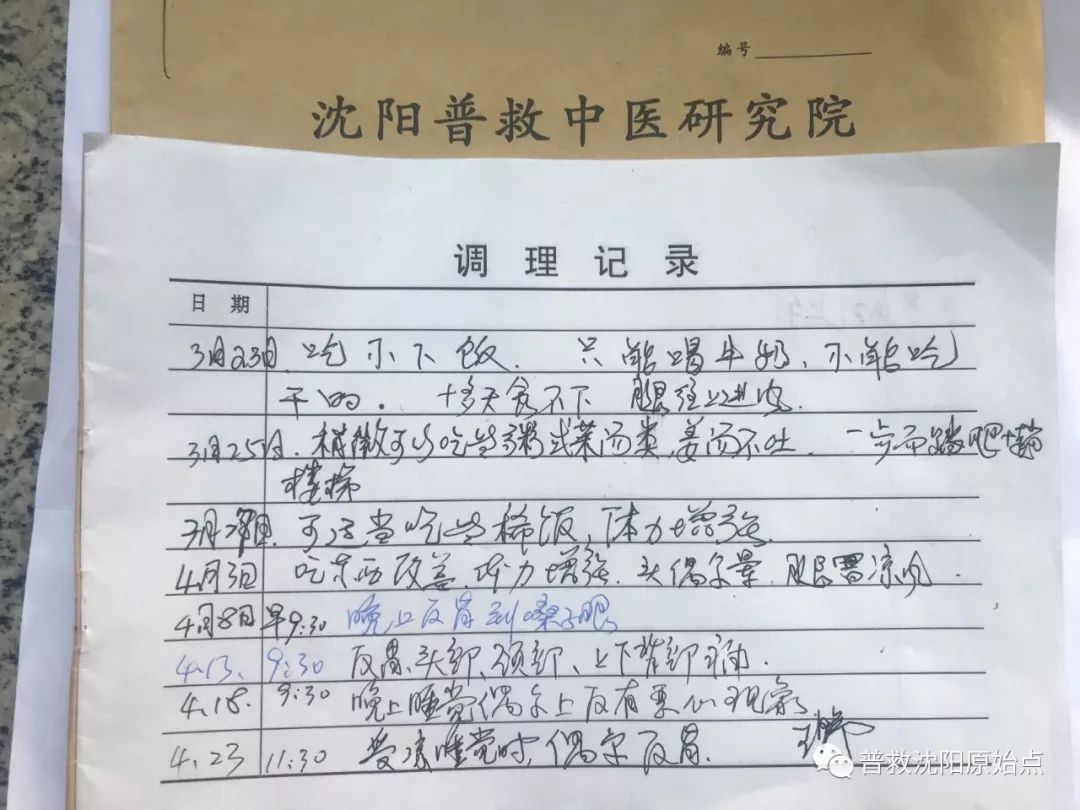 编号
沈阳普救中医研究院
调理记录
日期
3月23日. 吃不下饭. 只能喝牛奶, 不能吃
干的. 十多天食不下
3月25日. 稍微可以吃些粥或菜汤类, 姜汤不吐. 一步
楼梯
可适当吃些稀饭, 体力增强.
4月3日 吃东西改善, 体力增强. 头偶尔晕. 腿冒凉风.
4月8日 早9:30 晚上反胃到嗓子眼
4.13. 9:30 反胃、头部、颈部、上下背部痛.
4.18. 9:30 晚上睡觉偶尔上反有恶心现象
4.23 11:30 受凉睡觉时, 偶尔反胃.
普救沈阳原始点